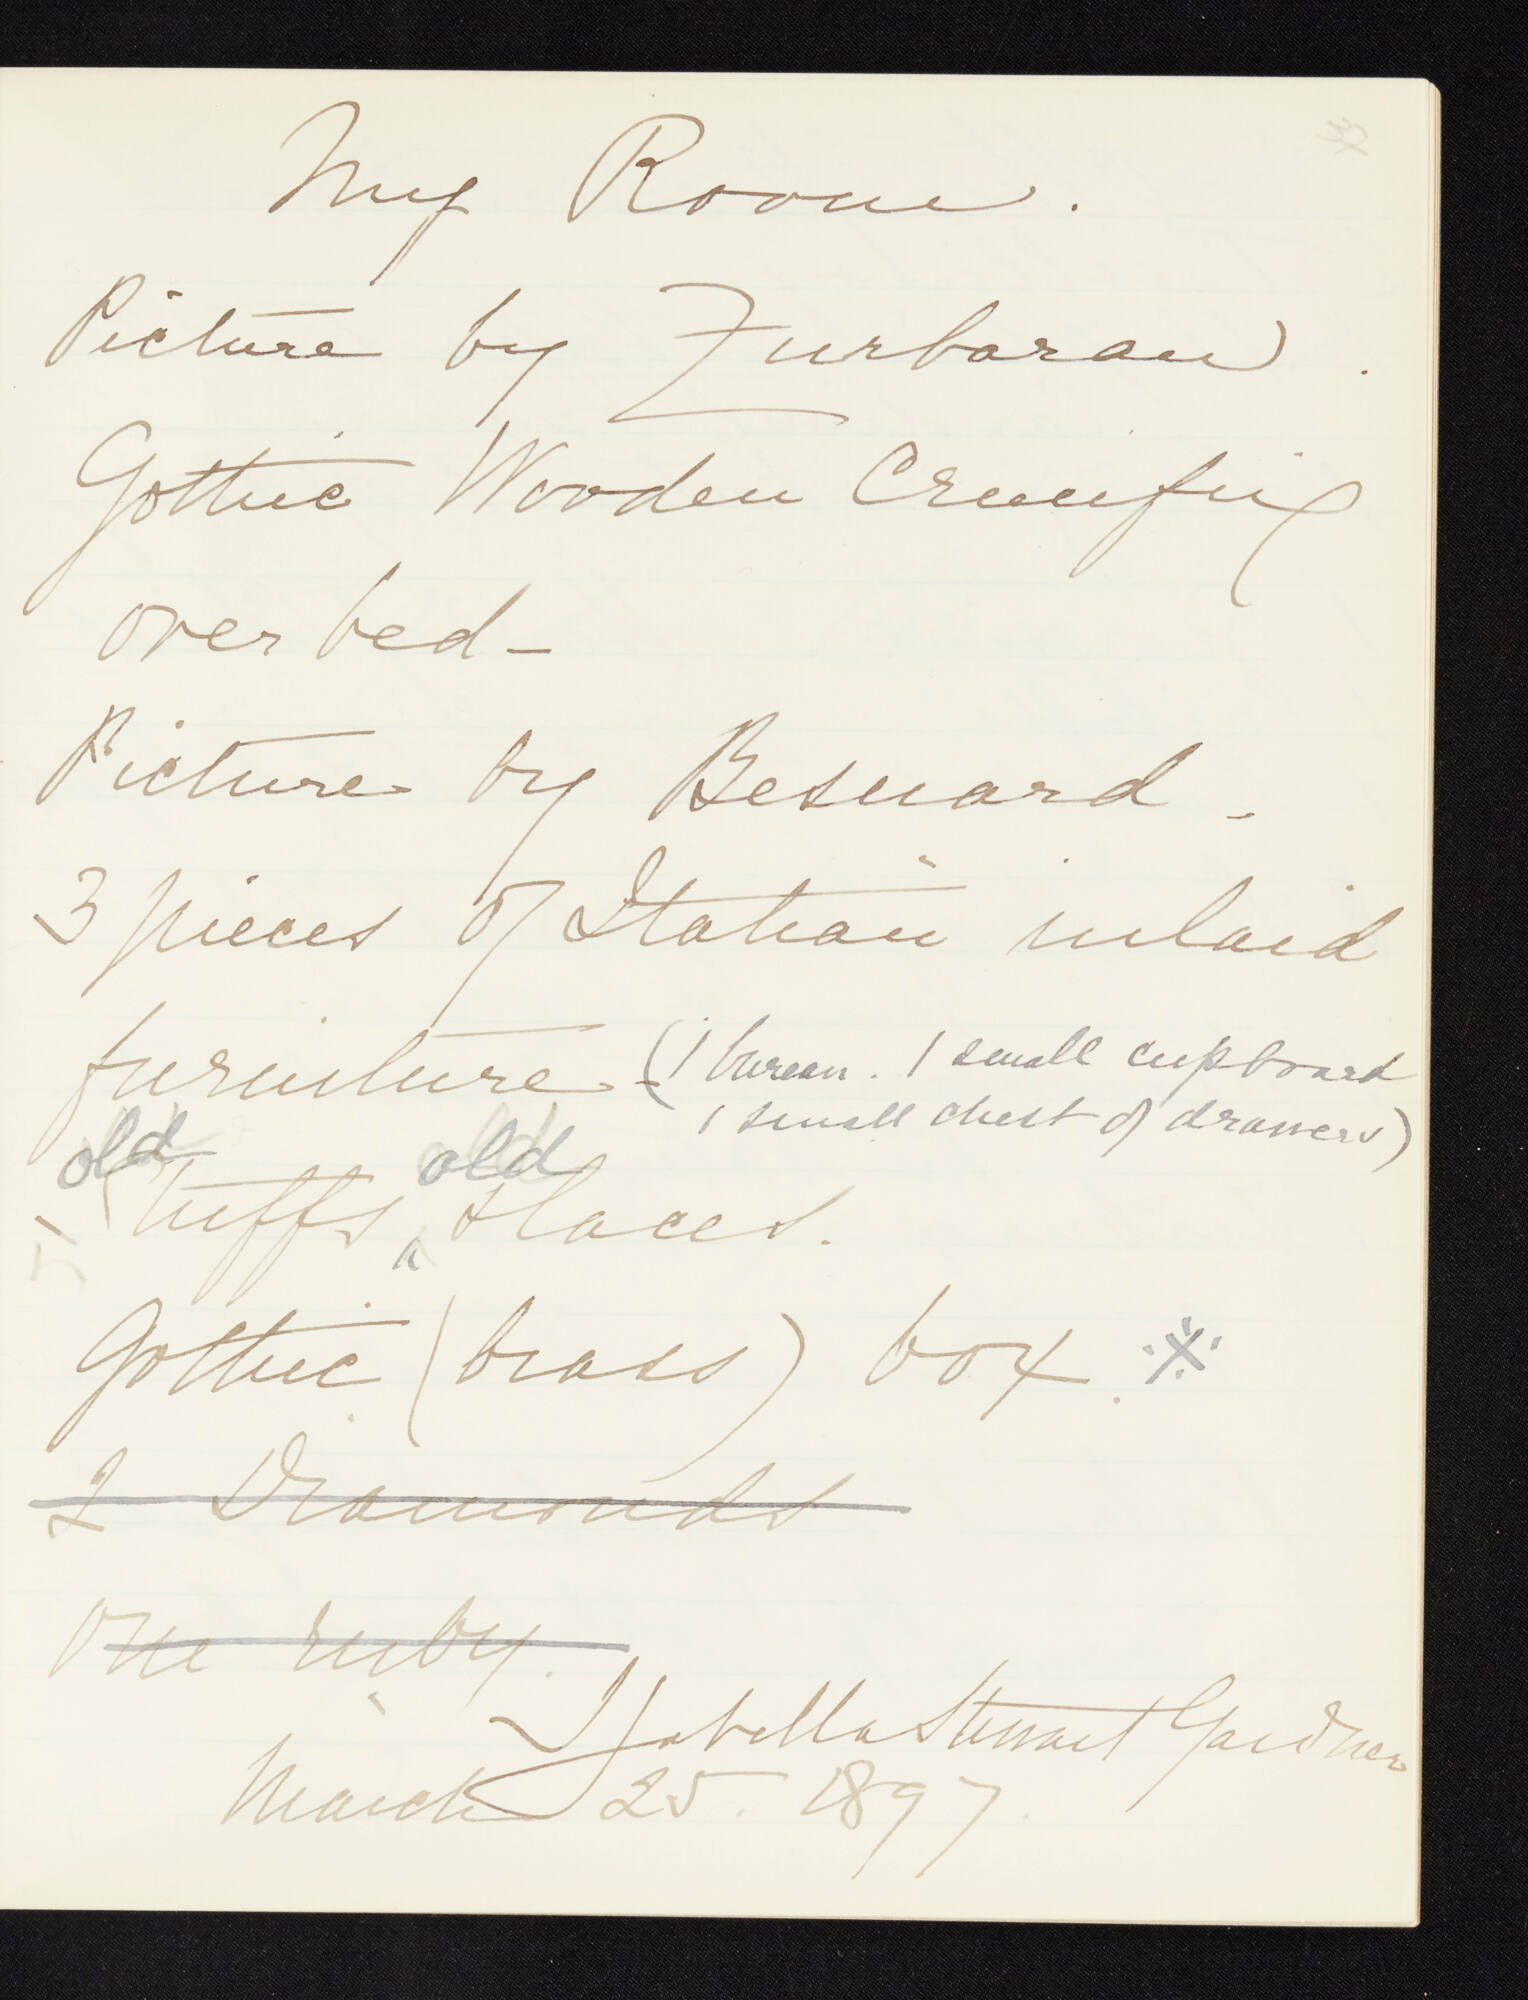 32
My Room.
Picture by Zurbaran.
Gothic Wooden Crucifix
over bed -
Picture by Besnard -
3 pieces of Italian inlaid
furniture - (1 bureau. 1 small cupboard
1 small chest of drawers)
old stuffs, old & laces.
Gothic (brass) box. ※
2 Diamonds
One ruby.
Isabella Stewart Gardner
March 25. 1897.